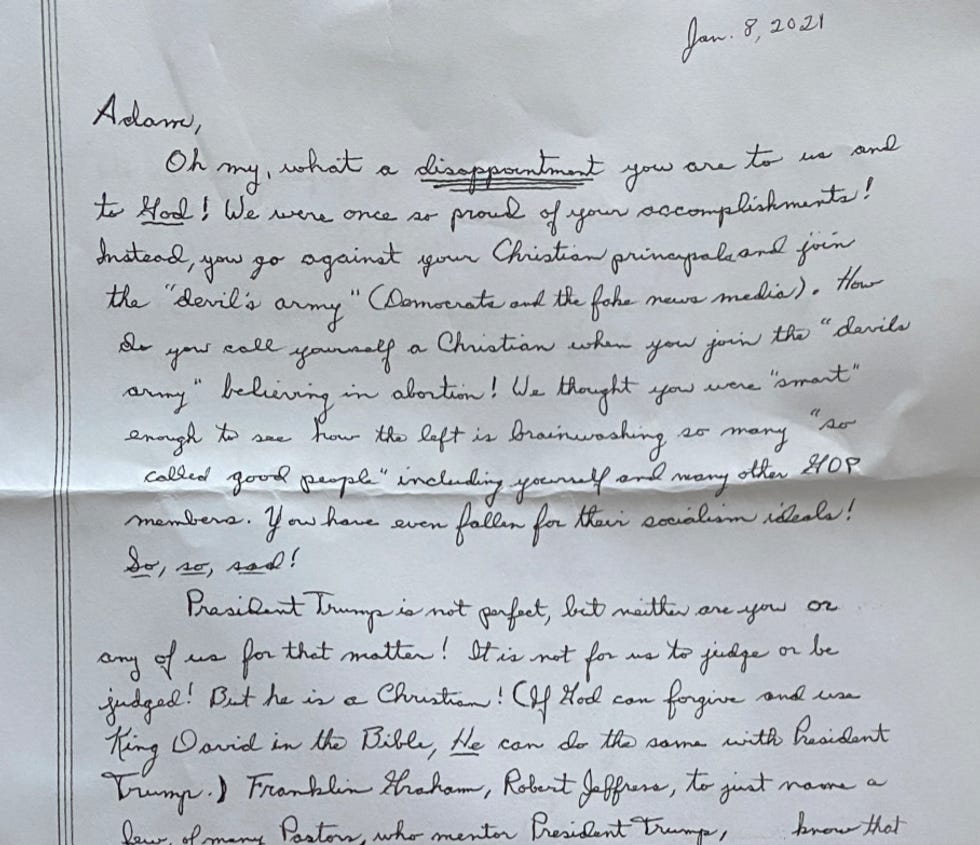 Jan. 8, 2021
Adam,
Oh my, what a disappointment you are to us and
to God! We were once so proud of your accomplishments!
Instead, you go against your Christian principals and join
the "devil's army" (Democrats and the fake news media). How
do you call yourself a Christian when you join the "devils
army" believing in abortion! We thought you were "smart"
enough to see how the left is brainwashing so many "so
called good people" including yourself and many other GOP
members. You have even fallen for their socialism ideals!
So, so, sad!
President Trump is not perfect, but neither are you or
any of us for that matter! It is not for us to judge or be
judged! But he is a Christian! (If God can forgive and use
King David in the Bible, He can do the same with President
Trump.) Franklin Graham, Robert Jeffress, to just name a
few of many Pastors, who mentor President Trump, know that